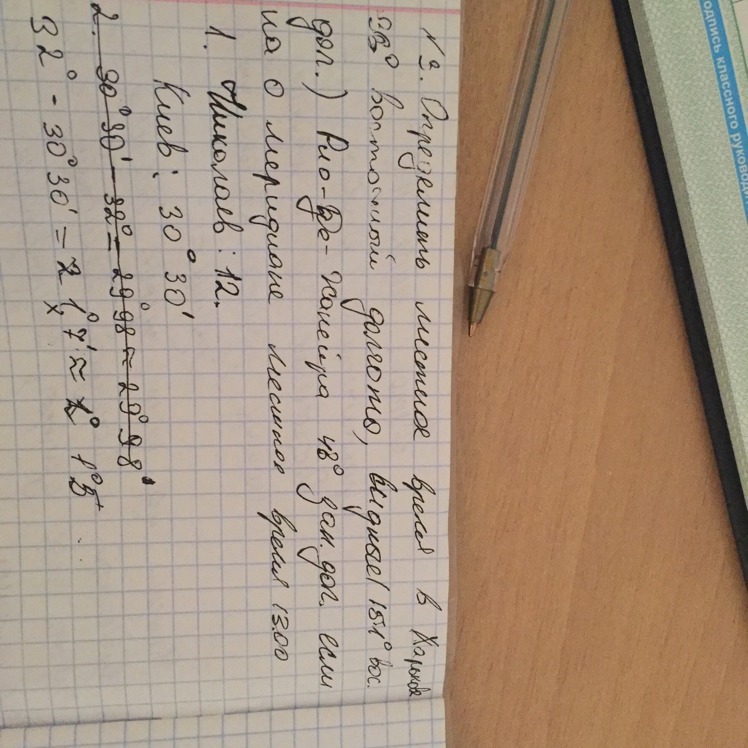 №2. Определить местное время в Харькове
восточный долготы, Сиднее (151° вос.
дол.) Рио-Де-Жанейра 43° зап. дол. если
на 0 меридиане местное время 13.00
1. Николаев: 12.
Киев: 30° 30'
2. 30° 30' - 32° = 29° 98 ≈ 29° 98'
32° - 30° 30' = 1° 7' ≈ 1°
одпись классного руковод